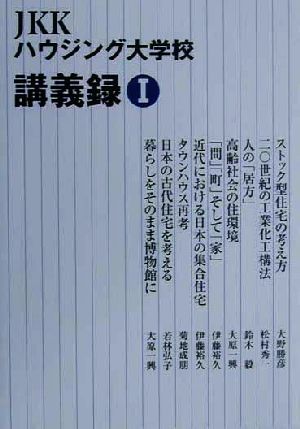 JKK
ハウジング大学校
講義録 I
ストック型住宅の考え方 大野勝彦
二〇世紀の工業化工構法 松村秀一
人の「居方」 鈴木毅
高齢社会の住環境 大原一興
「間」「町」そして「家」 伊藤裕久
近代における日本の集合住宅 伊藤裕久
タウンハウス再考 菊地成朋
日本の古代住宅を考える 若林弘子
暮らしをそのまま博物館に 大原一興